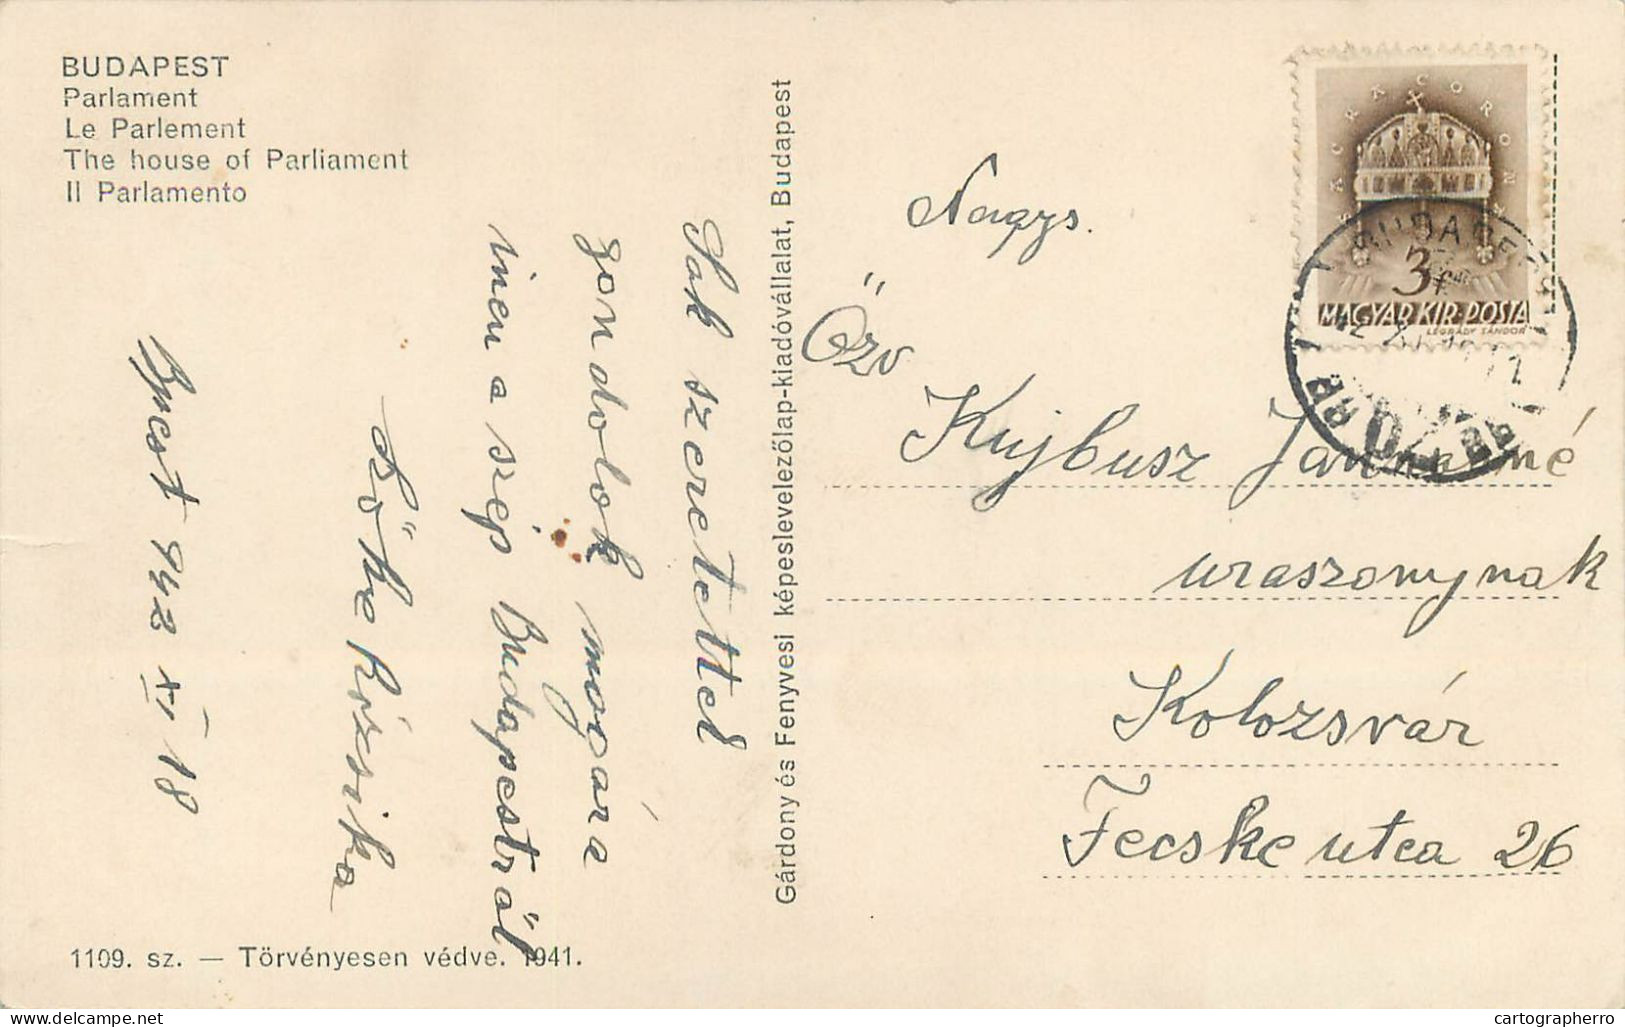 BUDAPEST
Parlament
Le Parlement
The house of Parliament
Il Parlamento
Sok szeretettel
gondolok magára
innen a szép Budapestről
Szőke Rózsika
Bpest 942 XI 18
1109. sz. — Törvényesen védve. 1941.
Gárdony és Fenyvesi képeslevelezőlap-kiadóvállalat, Budapest
SACRA CORONA
3f
MAGYAR KIR. POSTA
LEGRÁDY SÁNDOR
BUDAPEST
Nagys.
Özv
Kujbusz Jánosné
uraszonynak
Kolozsvár
Fecske utca 26
www.delcampe.net
cartographerro